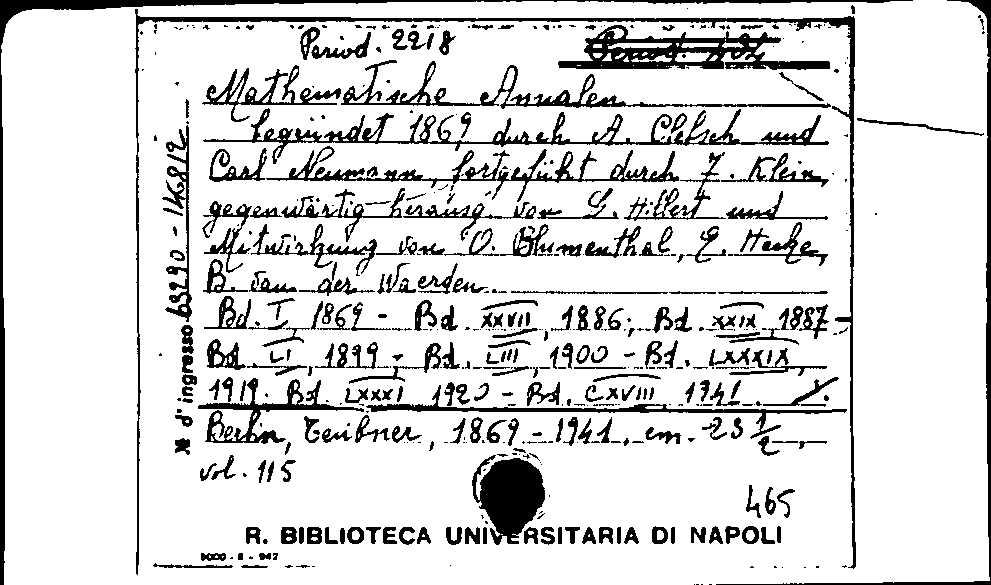 Period. 2218
Mathematische Annalen
begründet 1869 durch A. Clebsch und
Carl Neumann, fortgeführt durch F. Klein,
gegenwärtig herausg. von G. Hilbert und
Mitwirkung von O. Blumenthal, E. Hecke,
B. van der Waerden.
Bd. I, 1869 - Bd. XXVII, 1886; Bd. XXIX, 1887 -
Bd. LI, 1899; Bd. LIII, 1900 - Bd. LXXXIX,
1919. Bd. LXXXI 1920 - Bd. CXVIII, 1941.
Berlin, Teubner, 1869 - 1941, cm. 23 1/2,
vol. 115
465
№ d'ingresso 63290 - 146812
R. BIBLIOTECA UNIVERSITARIA DI NAPOLI